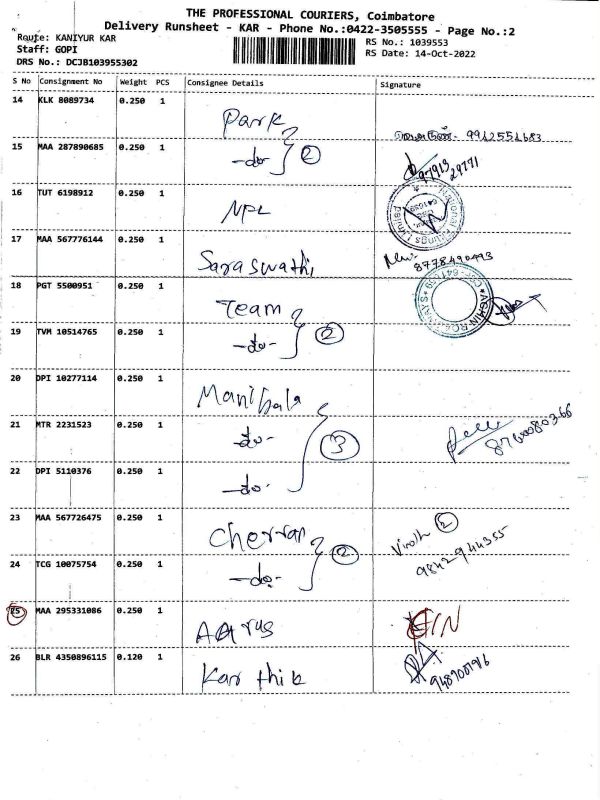 THE PROFESSIONAL COURIERS, Coimbatore
Delivery Runsheet - KAR - Phone No.:0422-3505555 - Page No.:2
Route: KANIYUR KAR
RS No.: 1039553
Staff: GOPI
RS Date: 14-Oct-2022
DRS No.: DCJB103955302
S No Consignment No Weight PCS Consignee Details Signature
14 KLK 8089734 0.250 1 Park
15 MAA 287890685 0.250 1 -do- 2
16 TUT 6198912 0.250 1 NPL
17 MAA 567776144 0.250 1 Saraswathi
8778490493
18 PGT 5500951 0.250 1 Team
19 TVM 10514765 0.250 1 -do- 2
20 DPI 10277114 0.250 1 Manibala
21 MTR 2231523 0.250 1 -do- 3
22 DPI 5110376 0.250 1 -do-
23 MAA 567726475 0.250 1 Cherran 2
24 TCG 10075754 0.250 1 -do- 2
9842944355
25 MAA 295331086 0.250 1
26 BLR 4350896115 0.120 1 Karthik